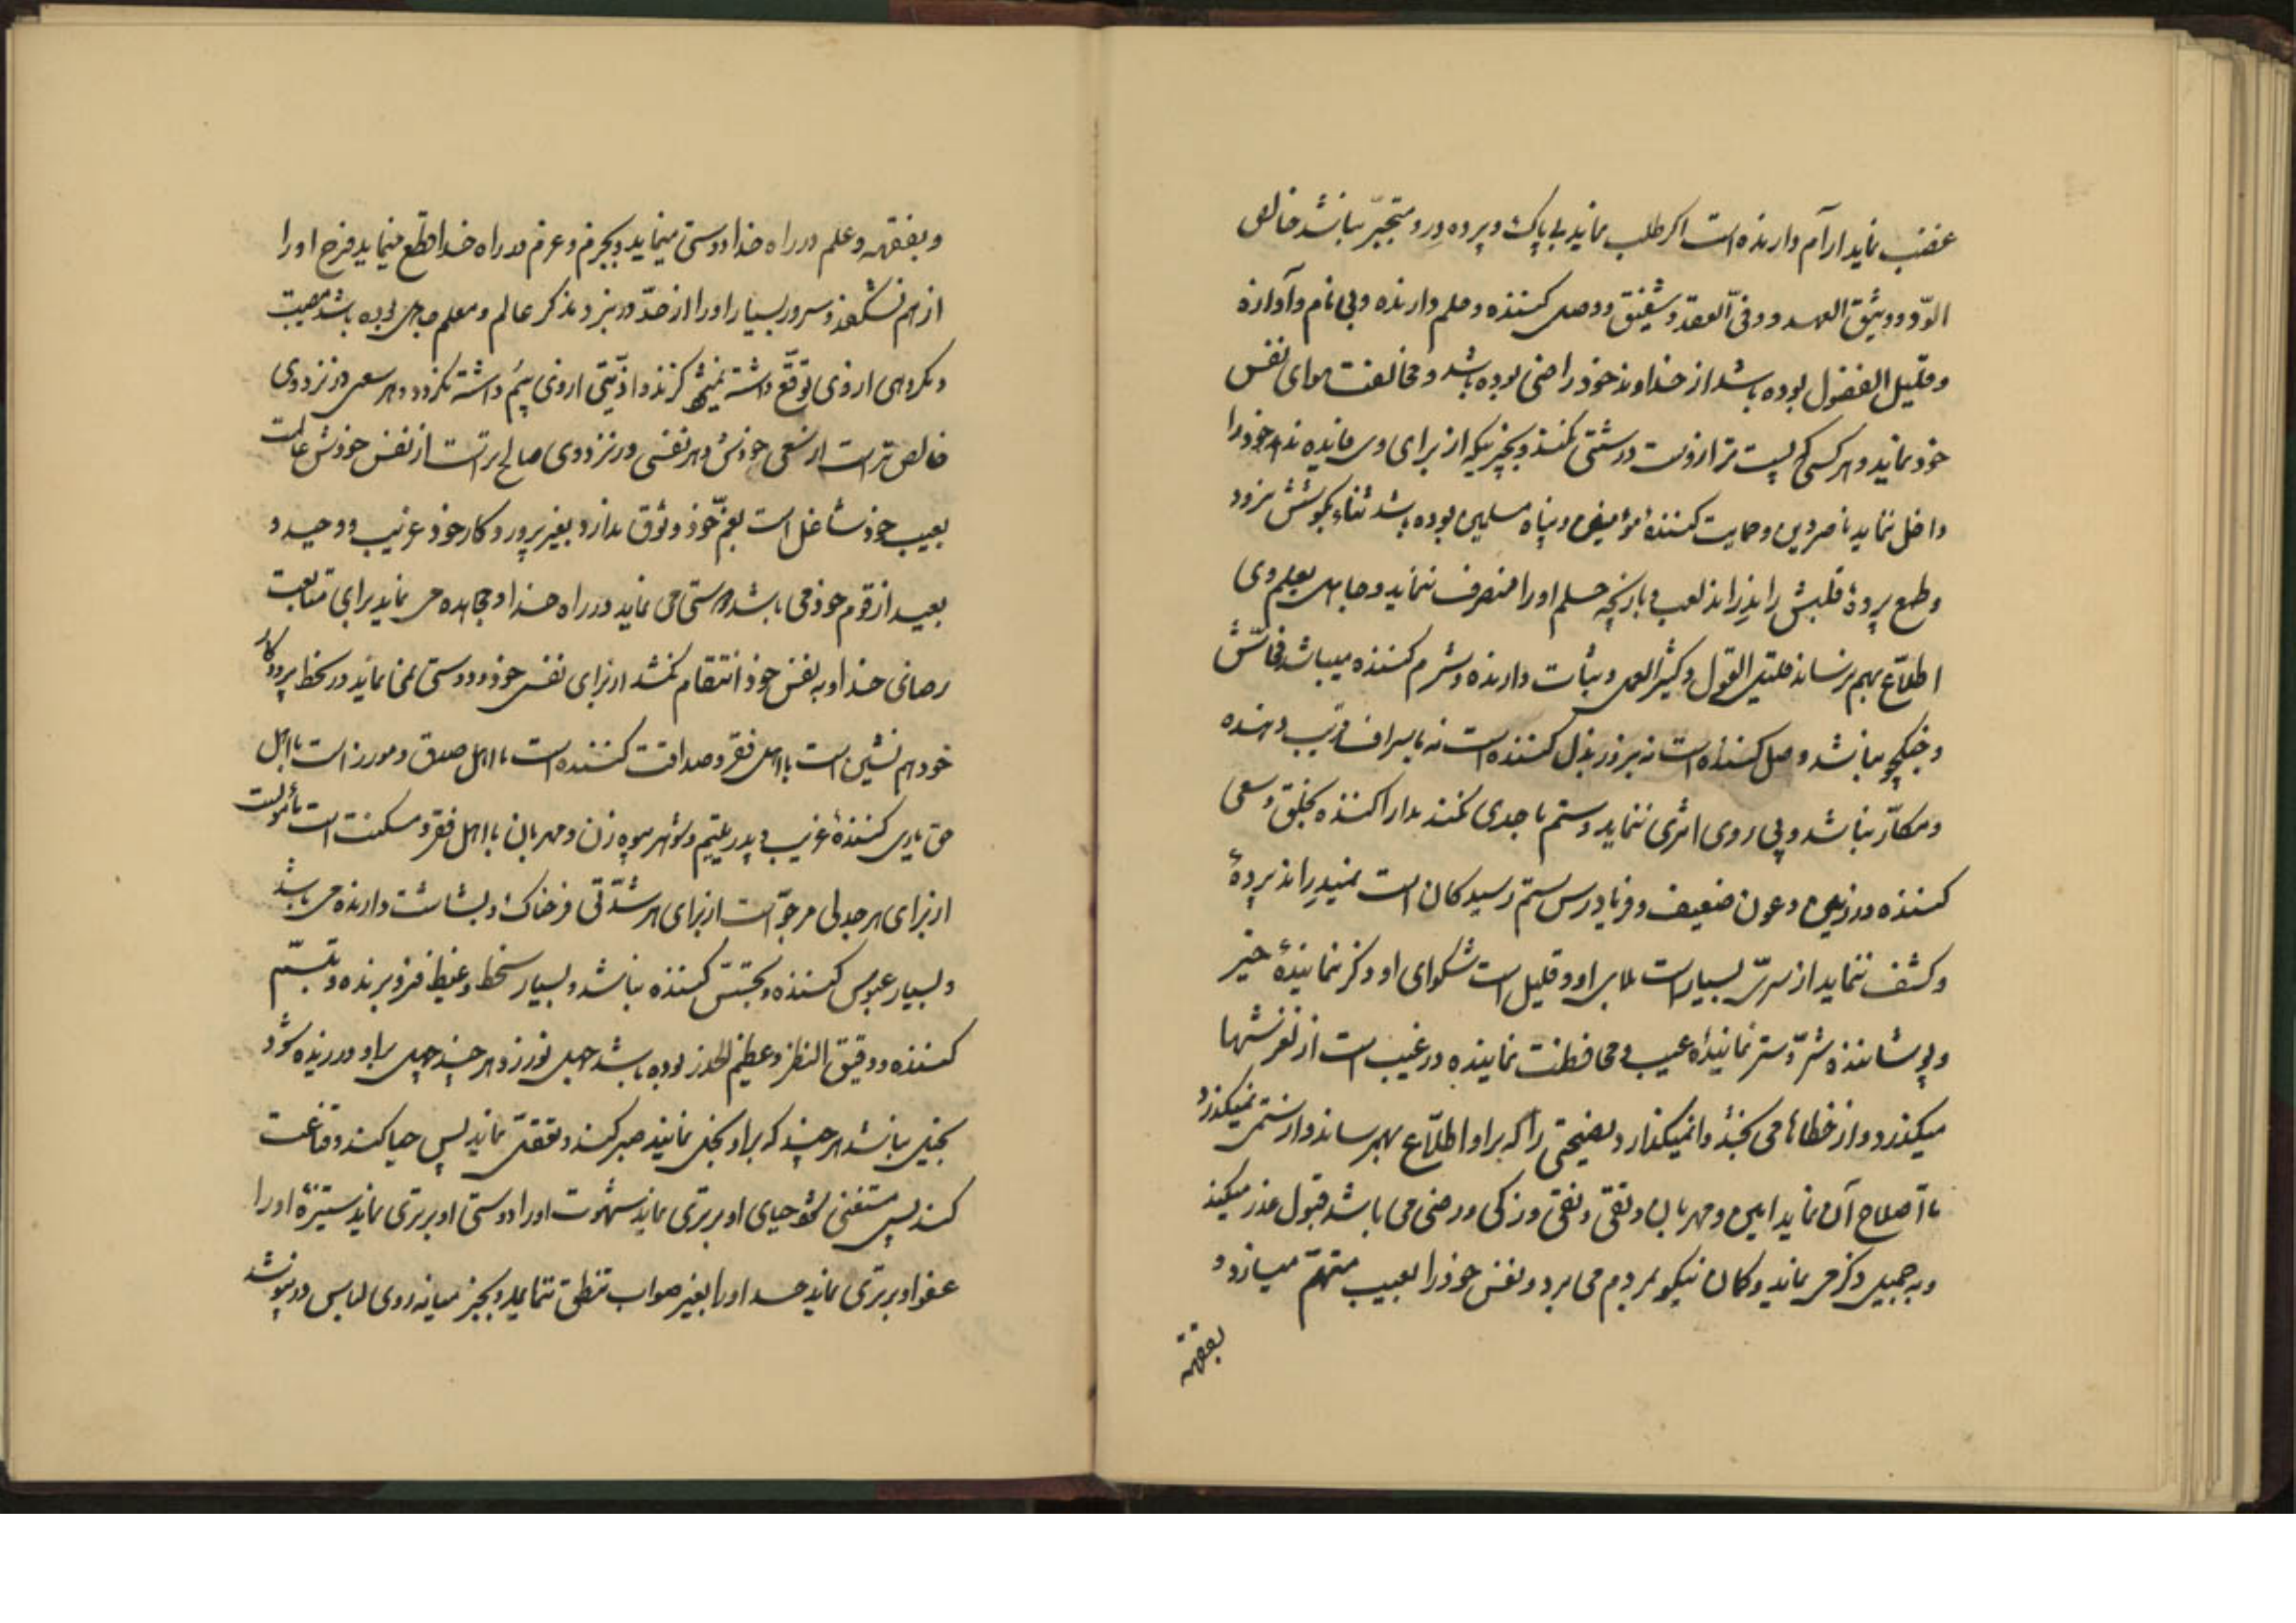 غضب نماید آرام دارنده است اگر طلب نماید بی باک و پرده در و متجبّر نباشد خالص
الودّ و وثیق العهد و وفیّ العقد و شفیق و وصل کننده و حلم دارنده و بی نام و آوازه
و قلیل الفضول بوده باشد از خداوند خود راضی بوده باشد و مخالفت هوای نفس
خود نماید و هر کسی که پست تر از اوست درشتی نکند و بچیزیکه از برای وی فایده ندهد خود را
داخل ننماید ناصر دین و حمایت کننده مؤمنین و پناه مسلمین بوده باشد ثناء بگوشش نرود
و طمع پرده قلبش را ندراند لعب و بازیچه حلم او را منصرف ننماید و جاهل بعلم وی
اطلاع بهم نرساند قلیل القول و کثیر العمل و ثبات دارنده و شرم کننده میباشد فحاش
و جنگجو نباشد وصل کننده است نه بزور بذل کننده است نه باسراف فریب دهنده
و مکّار نباشد و پی روی اثری ننماید و ستم باحدی نکند مدارا کننده بخلق و سعی
کننده در زمین و عون ضعیف و فریادرس ستم رسیدگان است نمیدراند پرده
و کشف ننماید از سرّی بسیار است بلای او و قلیل است شکوای او ذکر نماینده خیر
و پوشاننده شرّ و ستر نماینده عیب و محافظت نماینده در غیب است از لغزشها
میگذرد و از خطاها می بخشد وانمیگذارد نصیحتی را که بر او اطلاع بهم رساند و از ستمی نمیگذرد
تا اصلاح آن نماید امین و مهربان و تقی و نقی و زکی و رضی می باشد قبول عذر میکند
و به جمیل ذکر می نماید و گمان نیکو بمردم می برد و نفس خود را بعیب متهم میسازد و
بفقهه
و بفقهه و علم در راه خدا دوستی مینماید و بجزم و عزم در راه خدا قطع مینماید فرح او را
از هم نشکفد و سرور بسیار او را از حدّ در نبرد مذکر عالم و معلم جاهل بوده باشد مصیبت
و مکروهی از وی توقّع داشته نمیشود و اذیّتی از وی بیم داشته نگردد و هر سعی در نزد وی
خالص تر است از سعی خودش و هر نفسی در نزد وی صالح تر است از نفس خودش عالمست
بعیب خود شاغل است بغم خود وثوق ندارد بغیر پرورد کار خود غریب و وحید و
بعید از قوم خود می باشد دوستی می نماید در راه خدا و مجاهده می نماید برای متابعت
رضای خدا و به نفس خود انتقام نکشد از برای نفس خود و دوستی نمی نماید در سخط پروردکار
خود هم نشین است با اهل فقر و صداقت کننده است با اهل صدق و مورز است با اهل
حق یاری کننده غریب و پدر یتیم و شوهر بیوه زن و مهربان با اهل فقر و مسکنت است مأمولست
از برای هر جدلی مرجوّ است از برای هر شدّتی فرخناک و بشاشت دارنده می باشد
و بسیار عبوس کننده و تجسّس کننده نباشد و بسیار سخط و غیظ فرو برنده و تبسّم
کننده و دقیق النظر و عظیم الحذر بوده باشد جهل نورزد هر چند جهل بر او ورزیده شود
بخیل نباشد هر چند که بر او بخل نمایند صبر کند و تعقل نماید پس حیا کند و قناعت
کند پس مستغنی شود حیای او برتری نماید شهوت او را دوستی او برتری نماید ستیزه او را
عفو او برتری نماید حسد او را بغیر صواب تنطق ننماید و بجز میانه روی لباس در نپوشد